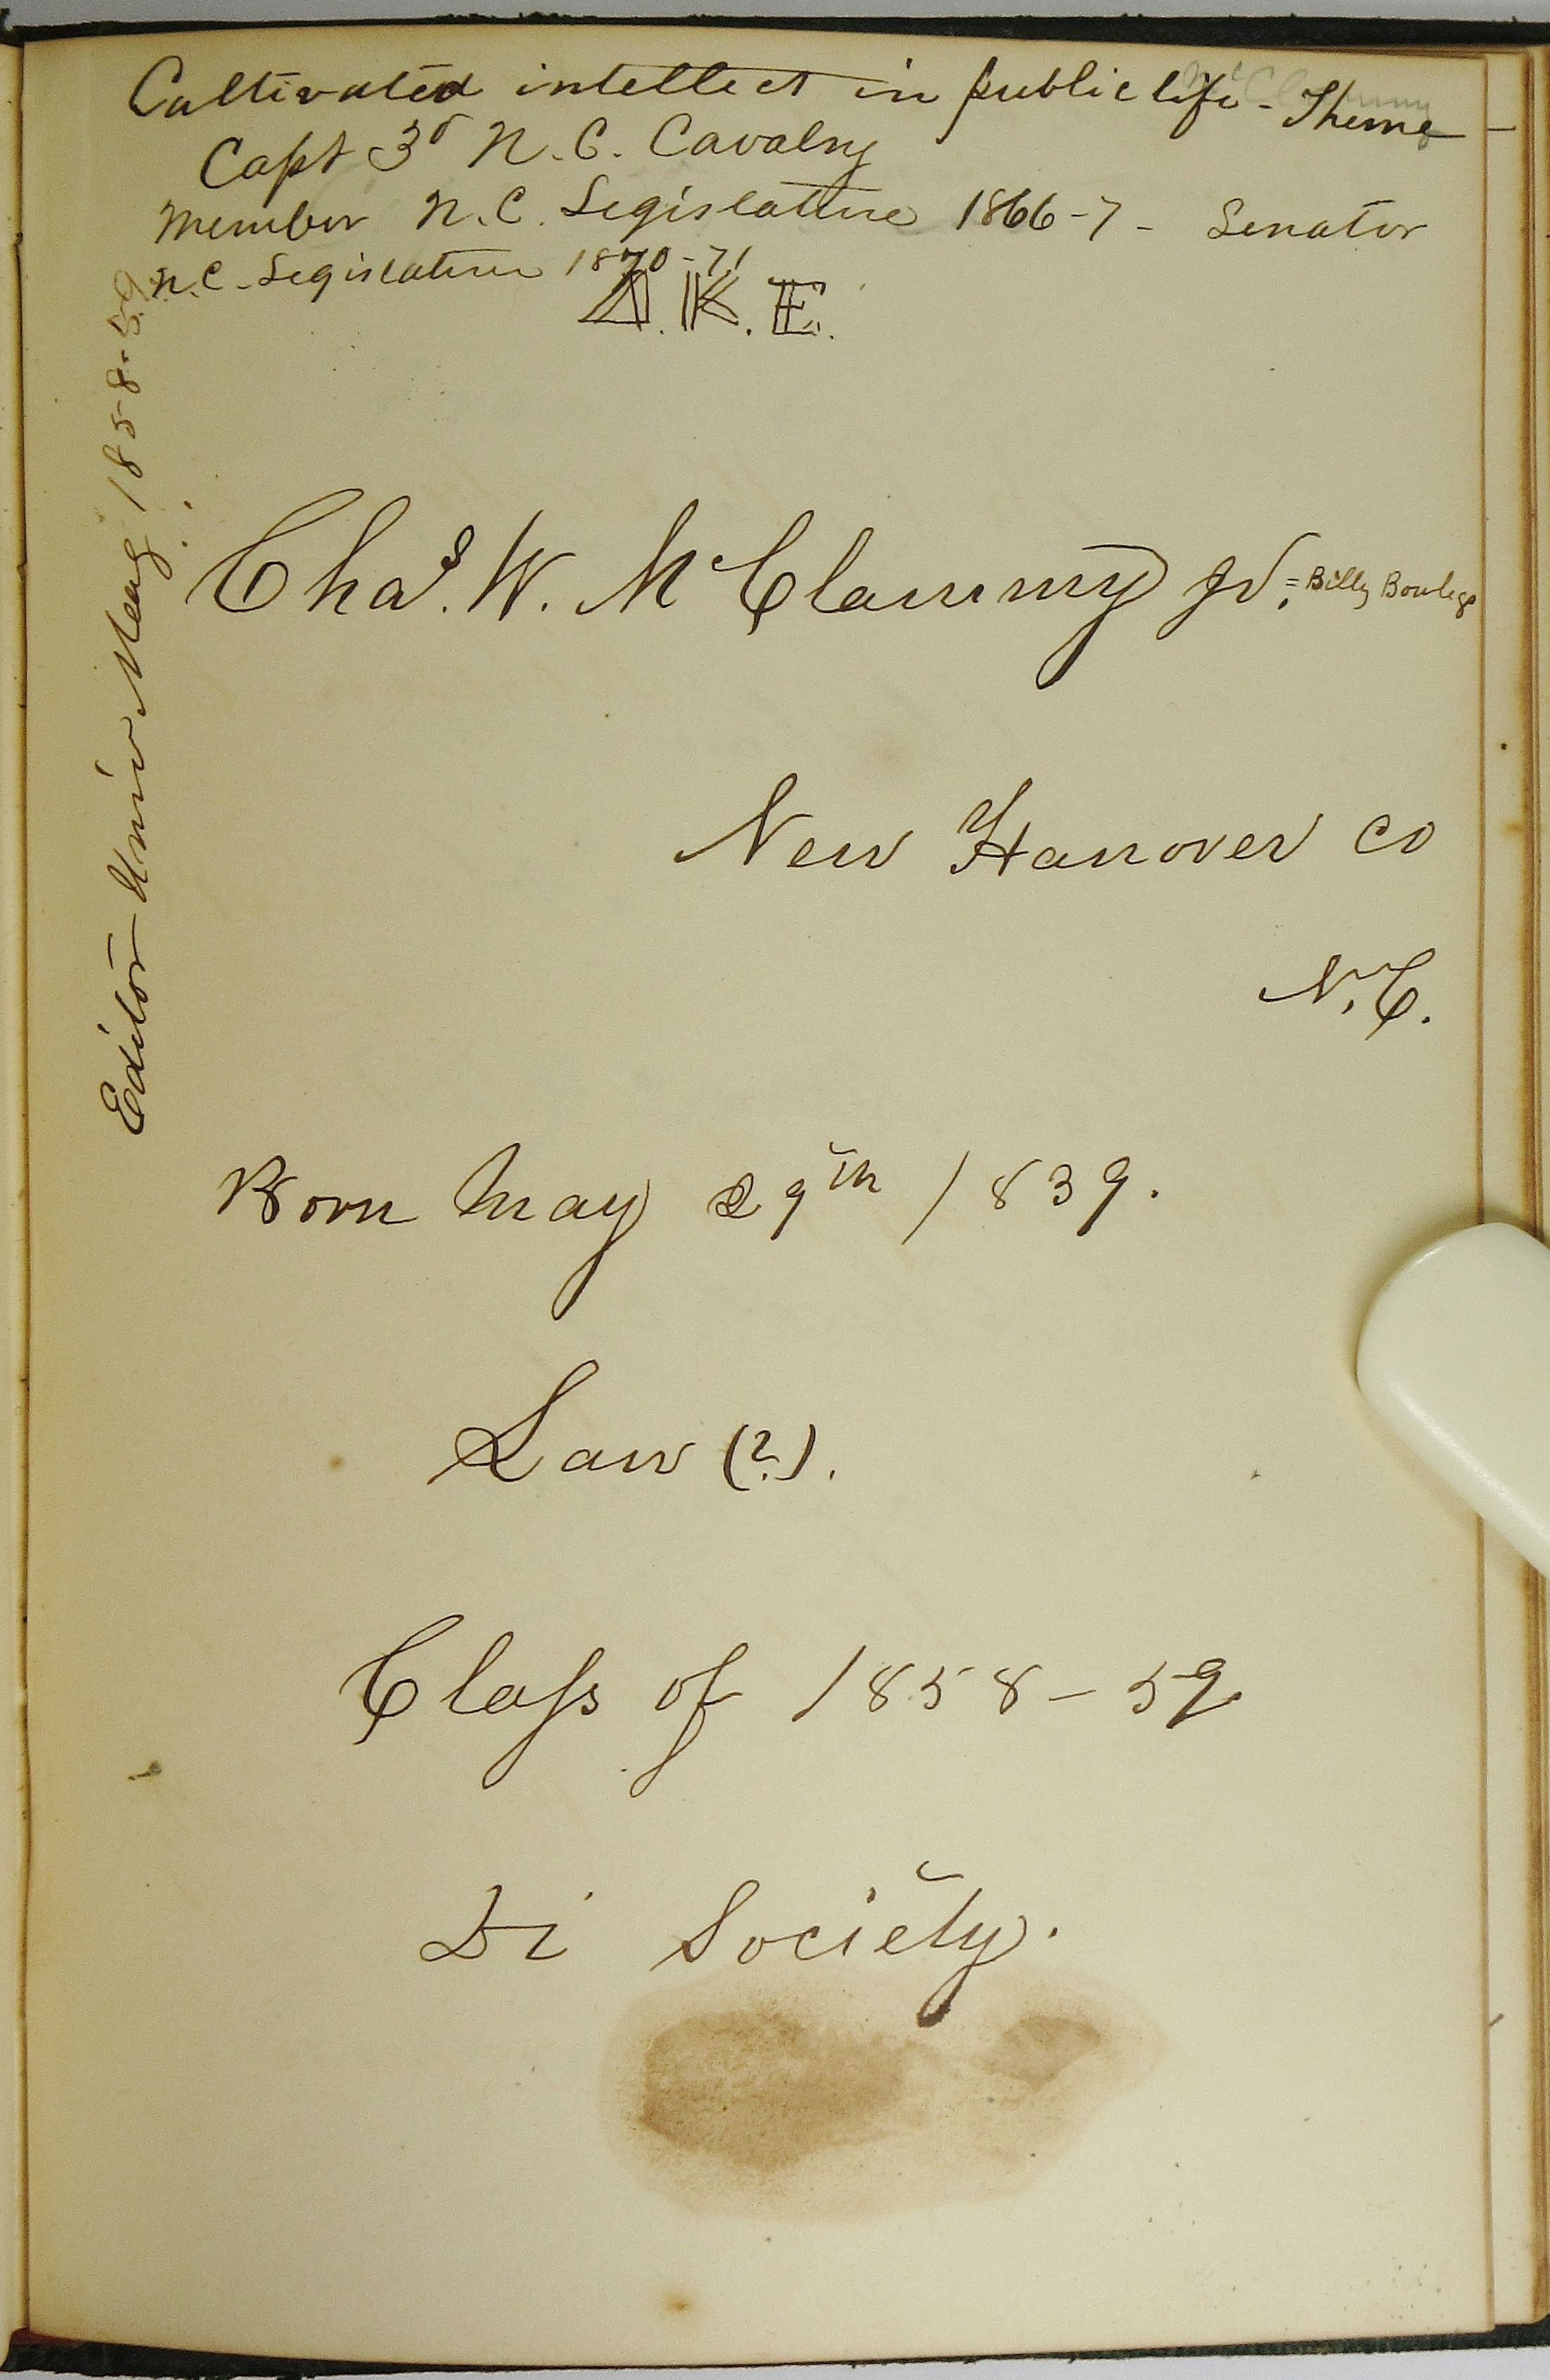 Cultivated intellect in public life - Theme
Capt 3d N.C. Cavalry
Member N.C. Legislature 1866-7 - Senator
N.C. Legislature 1870-71
Δ.K.E.
Editor Univ Mag. 1858-59
Chas. W. McClammy Jr. = Billy Bowlegs
New Hanover Co
N.C.
Born May 29th 1839.
Law (?).
Class of 1858-59
Di Society.